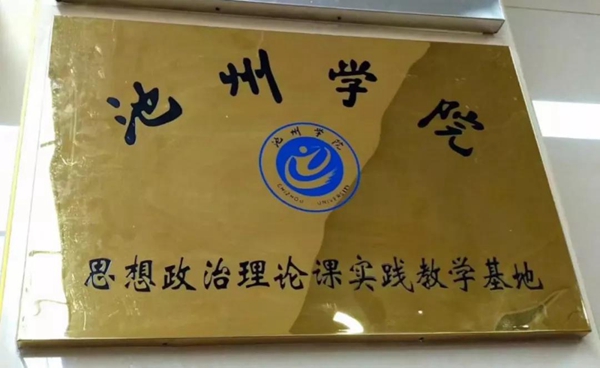 池州学院
池州学院
思想政治理论课实践教学基地